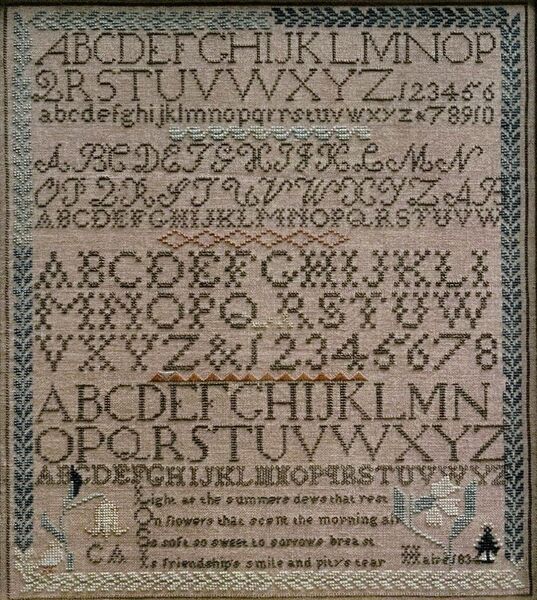 ABCDEFGHIJKLMNOP
QRSTUVWXYZ 123456
abcdefghijklmnopqrrstuvwxyz&78910
ABCDEFGHIJKLMN
OPQRSTUVWXYZAB
ABCDEFGHIJKLMNOPQRSTUVW
ABCDEFGHIJKLI
MNOPQRSTUW
VXYZ&12345678
ABCDEFGHIJKLMN
OPQRSTUVWXYZ
ABCDEFGHIJKLMNOPQRSTUVWXYZ
Light as the summers dews that rest
On flowers that scent the morning air
so soft so sweet to sorrows breast
CA Is friendship's smile and pity's tear